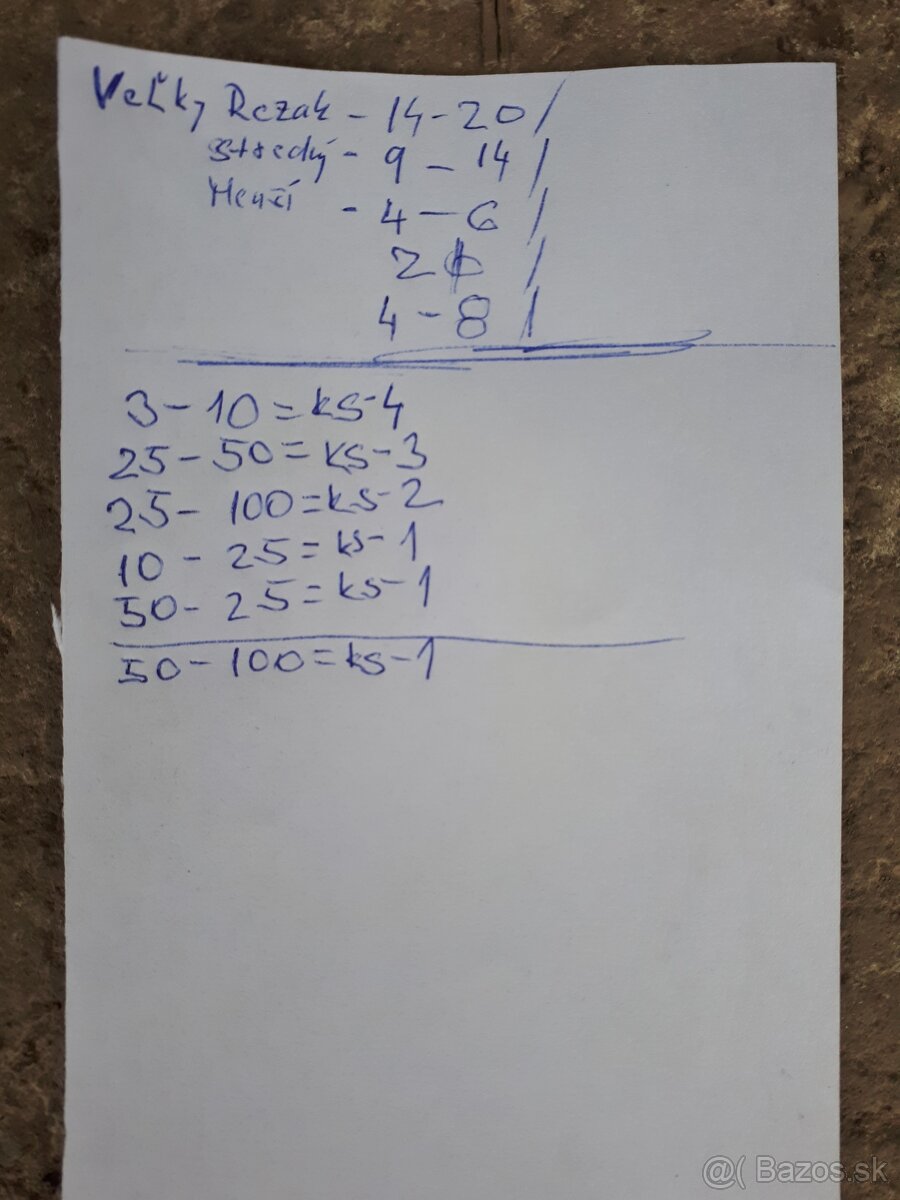 Veľky Rezak - 14-20/
stredný - 9 - 14 /
Menší - 4 - 6 /
2 /
4 - 8 /
3-10=ks-4
25-50=ks-3
25- 100=ks-2
10 - 25=ks-1
50- 25=ks-1
50-100=ks-1
@( Bazos.sk